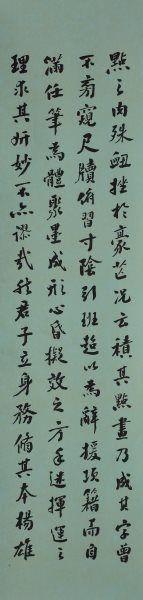 點之内殊衄挫於豪芒況云積其點畫乃成其字曾
不旁窺尺牘俯習寸陰引班超以為辭援項籍而自
滿任筆為體聚墨成形心昏擬效之方手迷揮運之
理求其妍妙不亦謬哉然君子立身務脩其本楊雄